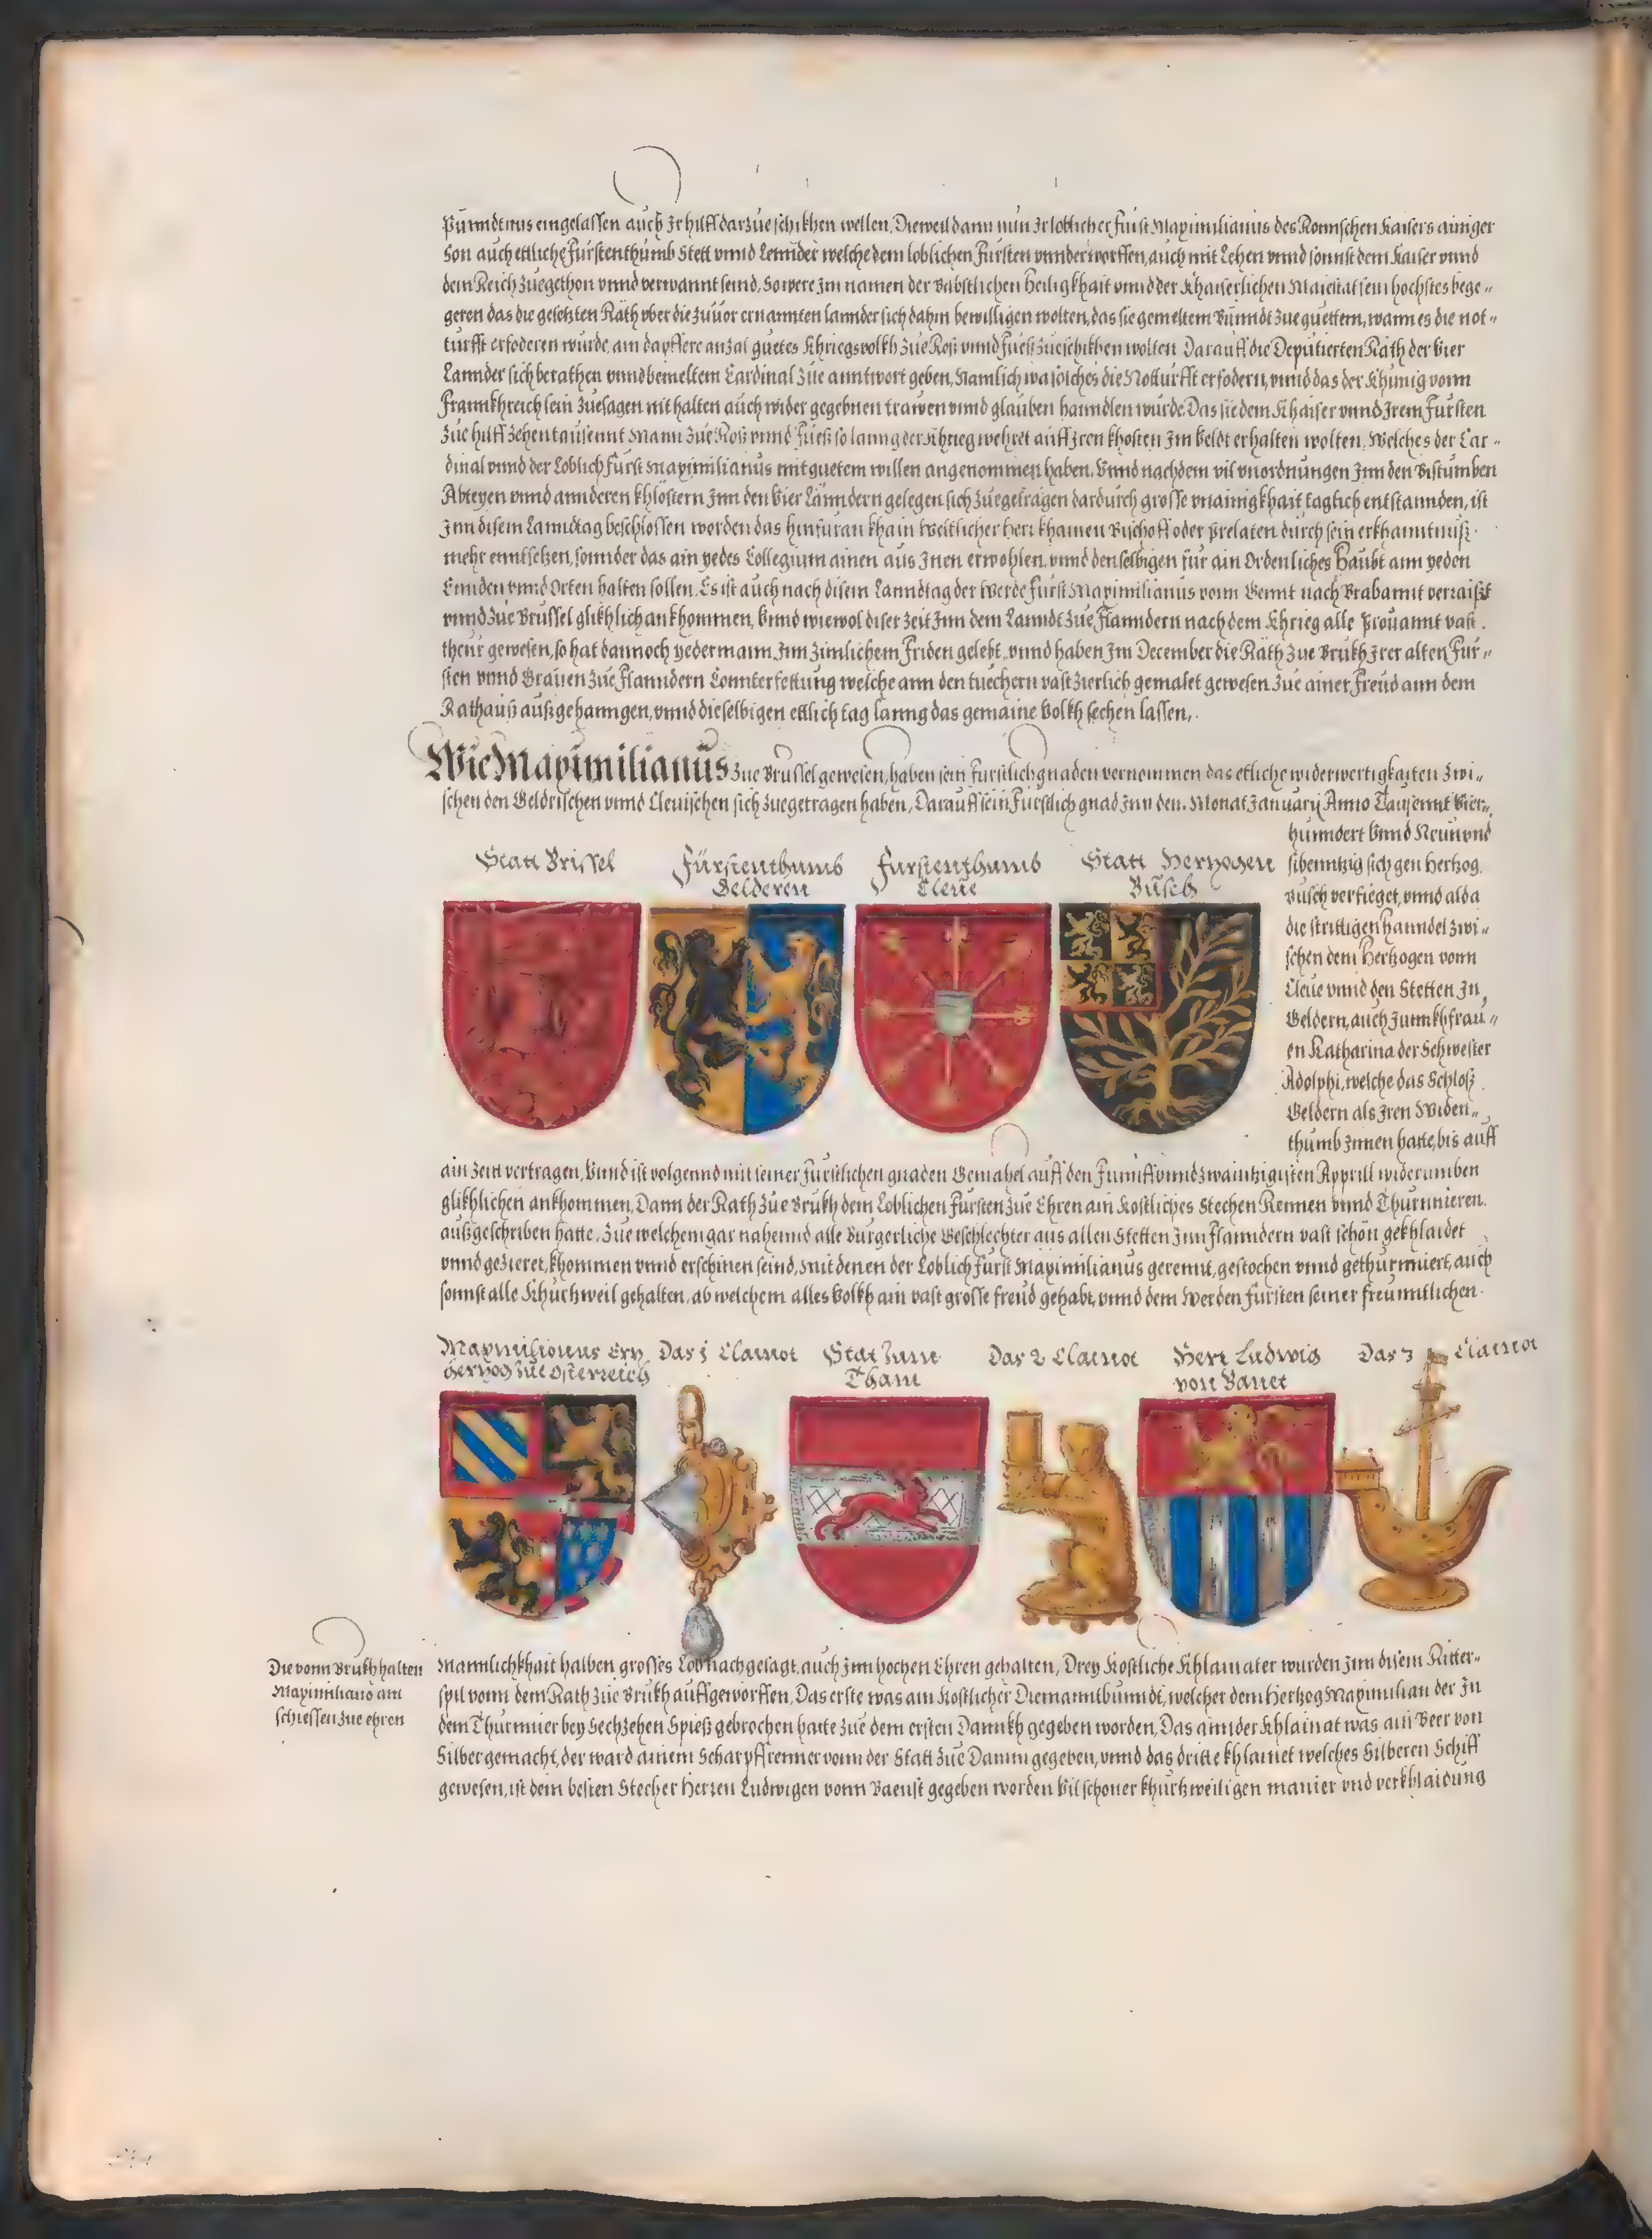 Pünndtnus eingelassen auch Jr hilff darzüe schikhen wellen, Dieweil dann nün Jr loblicher Fürst Maximilianus des Romischen Kaisers ainiger
Son auch ettliche Fürstenthumb Stett vnnd Lennder welche dem loblichen Fürsten vnnderworffen, auch mit Lehen vnnd sonnst dem Kaiser vnnd
dem Reich zuegethon vnnd verwannt seind, So were Jm namen der Babstlichen heiligkhait vnnd der Khaiserlichen Maiestat sein hochstes bege„
geren das die gesetzten Räth vber die züuor ernannten lannder sich dahin bewilligen wolten, das sie gemeltem Bünndt zue guettem, wann es die not„
türfft erfoderen würde, ain dapffere anzal guetes Khriegsvolkh züe Roß vnnd Füeß züeschikhen wolten Darauff die Depütierten Räth der Vier
Lannder sich berathen vnnd bemeltem Cardinal züe anntwort geben, Namlich wa solches die Notturfft erfodern, vnnd das der Khünig vonn
Frannkhreich sein züesagen nit halten auch wider gegebnen trawen vnnd glauben hanndlen würde. Das sie dem Khaiser vnnd Jrem Fursten
züe hilff zehentausennt Mann züe Roß vnnd Füeß so lanng der Khrieg wehret auff Jren khosten Jm Veldt erhalten wolten, Welches der Car„
dinal vnnd der Loblich Fürst Maximilianus mit guetem willen angenommen haben. Vnnd nachdem vil vnordnungen Jnn den Bistumben
Abteyen vnnd annderen Khlöstern Jnn den Vier Länndern gelegen sich zuegetragen dardurch grosse vnainigkhait taglich entstannden, ist
Jnn disem Lanndtag beschlossen worden das hinfüran khain Weltlicher herr khainen Bischoff oder Prelaten durch sein erkhanntnüß
mehr ennt setzen, sonnder das ain yedes Collegium ainen aus Jnen erwohlen, vnnd denselbigen für ain Ordenliches Haubt ann yeden
Ennden vnnd Orten halten sollen. Es ist auch nach disem Lanndtag der Werde Fürst Maximilianus vonn Gennt nach Brabannt verraißt
vnnd züe Brüssel glikhlich ankhommen, Vnnd wiewol diser zeit Jnn dem Lanndt züe Flanndern nach dem Khrieg alle Prouannt vast
theür gewesen, so hat dannoch yedermann Jnn zimlichem Friden gelebt, vnnd haben Jm December die Räth züe Brükh Jrer alten Für„
sten vnnd Grauen züe Flanndern Connterfettung welche ann den tuechern vast zierlich gemalet gewesen züe ainer freüd ann dem
Rathauß außgehanngen, vnnd dieselbigen ettlich tag lanng das gemaine Volkh sechen lassen.
Wie Maximilianüs züe Brüssel gewesen, haben sein fürstlich gnaden vernommen das etliche widerwertigkaiten zwi„
schen den Geldrischen vnnd Clevischen sich zuegetragen haben, Darauff sein Fürstlich gnad Jnn den Monat January Anno Tausennt Vier„
hunndert Vnnd Neün vnd
sibenntzig sich gen Hertzog
busch verfieget, vnnd alda
die strittigen hanndel zwi„
schen dem Hertzogen vonn
Cleüe vnnd den Stetten Jn
Geldern, auch Junnkhfrau„
en Katharina der Schwester
Adolphi, welche das Schloß
Geldern als Jren Widen„
thumb Jnnen hatte, bis auff
Statt Brissel
Fürstenthumb
Gelderen
Furstenthumb
Cleüe
Statt Hertzogen
Büsch
ain Zeit vertragen, Vnnd ist volgennd mit seiner fürstlichen gnaden Gemahel auff den Funff vnnd zwaintzigisten Apprill widerumben
glikhlichen ankhommen, Dann der Rath züe Brükh dem Loblichen Fürsten züe Ehren ain Kostliches Stechen Rennen vnnd Thurnnieren
außgeschriben hatte, züe welchem gar nahennd alle Burgerliche Geschlechter aus allen Stetten Jnn Flanndern vast schön gekhlaidet
vnnd gezieret, khommen vnnd erschinen seind, mit denen der Loblich Fürst Maximilianus gerennt, gestochen vnnd gethurnniert, auch
sonnst alle Khürtzweil gehalten, ab welchem alles Volkh ain vast grosse freüd gehabt, vnnd dem Werden Fürsten seiner freünntlichen
Maxmilionus Ertz
hertzog züe Osterreich
Das 1 Clainot
Stat zum
Tham
Das 2 Clainot
Herr Ludwig
von Banet
Das 3 Clainot
Die vonn Brukh halten
Maximiliano ain
schiessen züe ehren
Mannlichkhait halben grosses Lob nachgesagt, auch Jnn hochen Ehren gehalten, Drey Kostliche Khlainater wurden Jnn disem Ritter„
spil vonn dem Rath züe Brukh auffgeworffen, Das erste was ain Kostlicher Diemanntbunndt, welcher dem Hertzog Maximilian der Jn
dem Thurnnier bey Sechzehen Spieß gebrochen hatte züe dem ersten Dannkh gegeben worden, Das annder Khlainat was ain Beer von
Silber gemacht, der ward ainem Scharpffrenner vonn der Statt züe Damm gegeben, vnnd das dritte khlainet welches Silberen Schiff
gewesen, ist dem besten Stecher Herren Ludwigen vonn Baenst gegeben worden Vil schoner khurtzweiligen manier vnd verkhlaidung